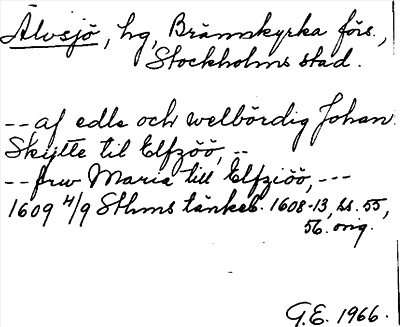 Älvsjö, hg, Brännkyrka förs.,
Stockholms stad.
-- af edle och welbördig Johan
Skytte til Elfzöö, --
-- frw Maria till Elfziöö, ---
1609 4/9 Sthms tänkeb. 1608-13, ss. 55,
56. orig.
G.E. 1966.